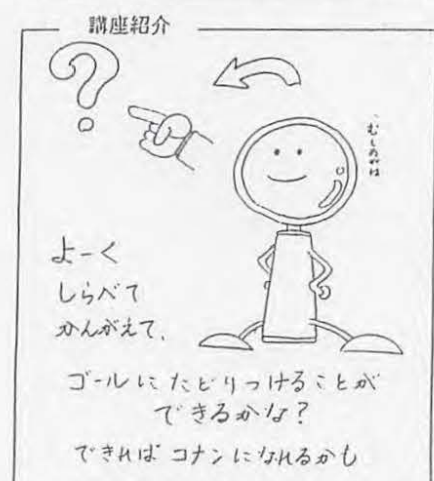 講座紹介
?
よーく
しらべて
かんがえて、
ゴールにたどりつけることが
できるかな?
できれば コナンになれるかも